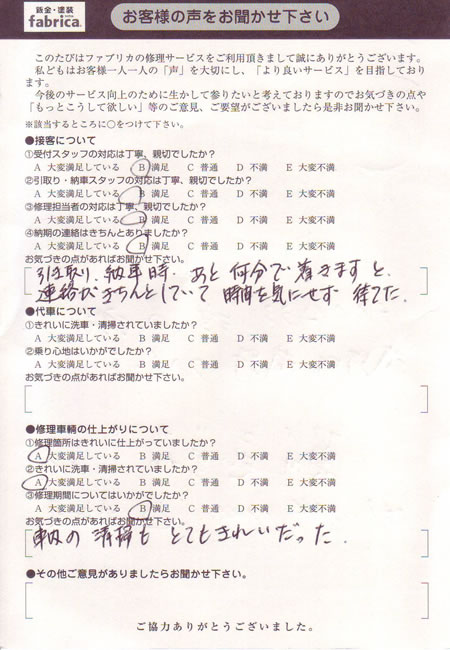 鈑金・塗装
fabrica.
お客様の声をお聞かせ下さい
このたびはファブリカの修理サービスをご利用頂きまして誠にありがとうございます。
私どもはお客様一人一人の「声」を大切にし、「より良いサービス」を目指しており
ます。
今後のサービス向上のために生かして参りたいと考えておりますのでお気づきの点や
「もっとこうして欲しい」等のご意見、ご要望がございましたら是非お聞かせ下さい。
※該当するところに○をつけて下さい。
●接客について
①受付スタッフの対応は丁寧、親切でしたか?
A 大変満足している B 満足 C 普通 D 不満 E 大変不満
②引取り・納車スタッフの対応は丁寧、親切でしたか?
A 大変満足している B 満足 C 普通 D 不満 E 大変不満
③修理担当者の対応は丁寧、親切でしたか?
A 大変満足している B 満足 C 普通 D 不満 E 大変不満
④納期の連絡はきちんとありましたか?
A 大変満足している B 満足 C 普通 D 不満 E 大変不満
お気づきの点があればお聞かせ下さい。
引き取り、納車時、あと何分で着きますと、
連絡がきちんとしていて時間を気にせず待てた。
●代車について
①きれいに洗車・清掃されていましたか?
A 大変満足している B 満足 C 普通 D 不満 E 大変不満
②乗り心地はいかがでしたか?
A 大変満足している B 満足 C 普通 D 不満 E 大変不満
お気づきの点があればお聞かせ下さい。
●修理車輌の仕上がりについて
①修理箇所はきれいに仕上がっていましたか?
A 大変満足している B 満足 C 普通 D 不満 E 大変不満
②きれいに洗車・清掃されていましたか?
A 大変満足している B 満足 C 普通 D 不満 E 大変不満
③修理期間についてはいかがでしたか?
A 大変満足している B 満足 C 普通 D 不満 E 大変不満
お気づきの点があればお聞かせ下さい。
車内の清掃もとてもきれいだった。
●その他ご意見がありましたらお聞かせ下さい。
ご協力ありがとうございました。